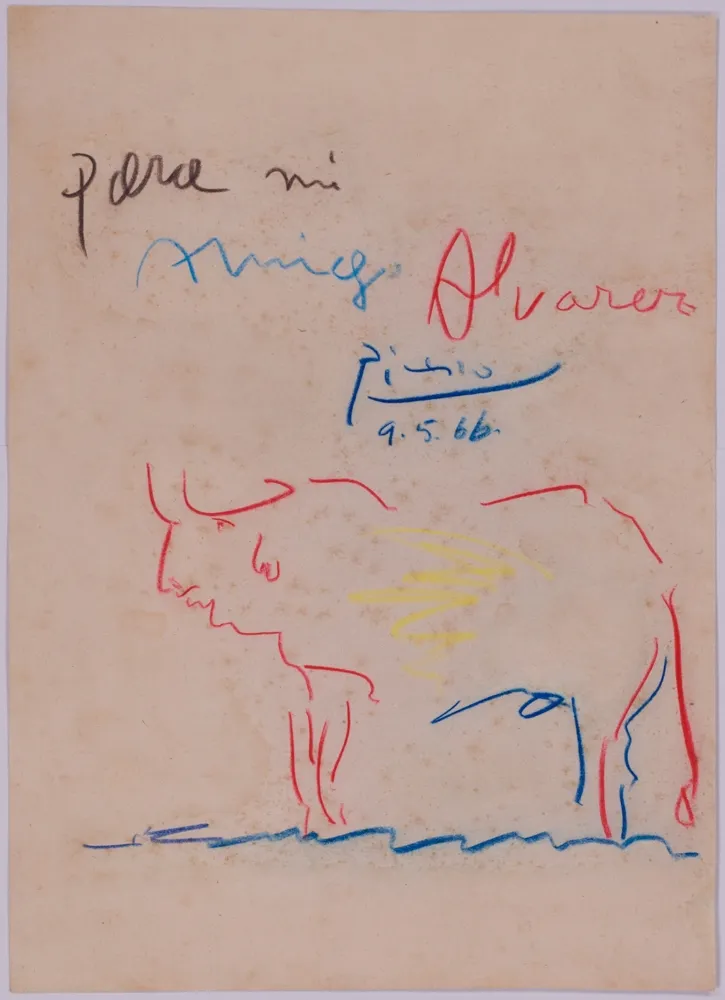 para mi
Amigo Alvarez
Picasso
9.5.66.